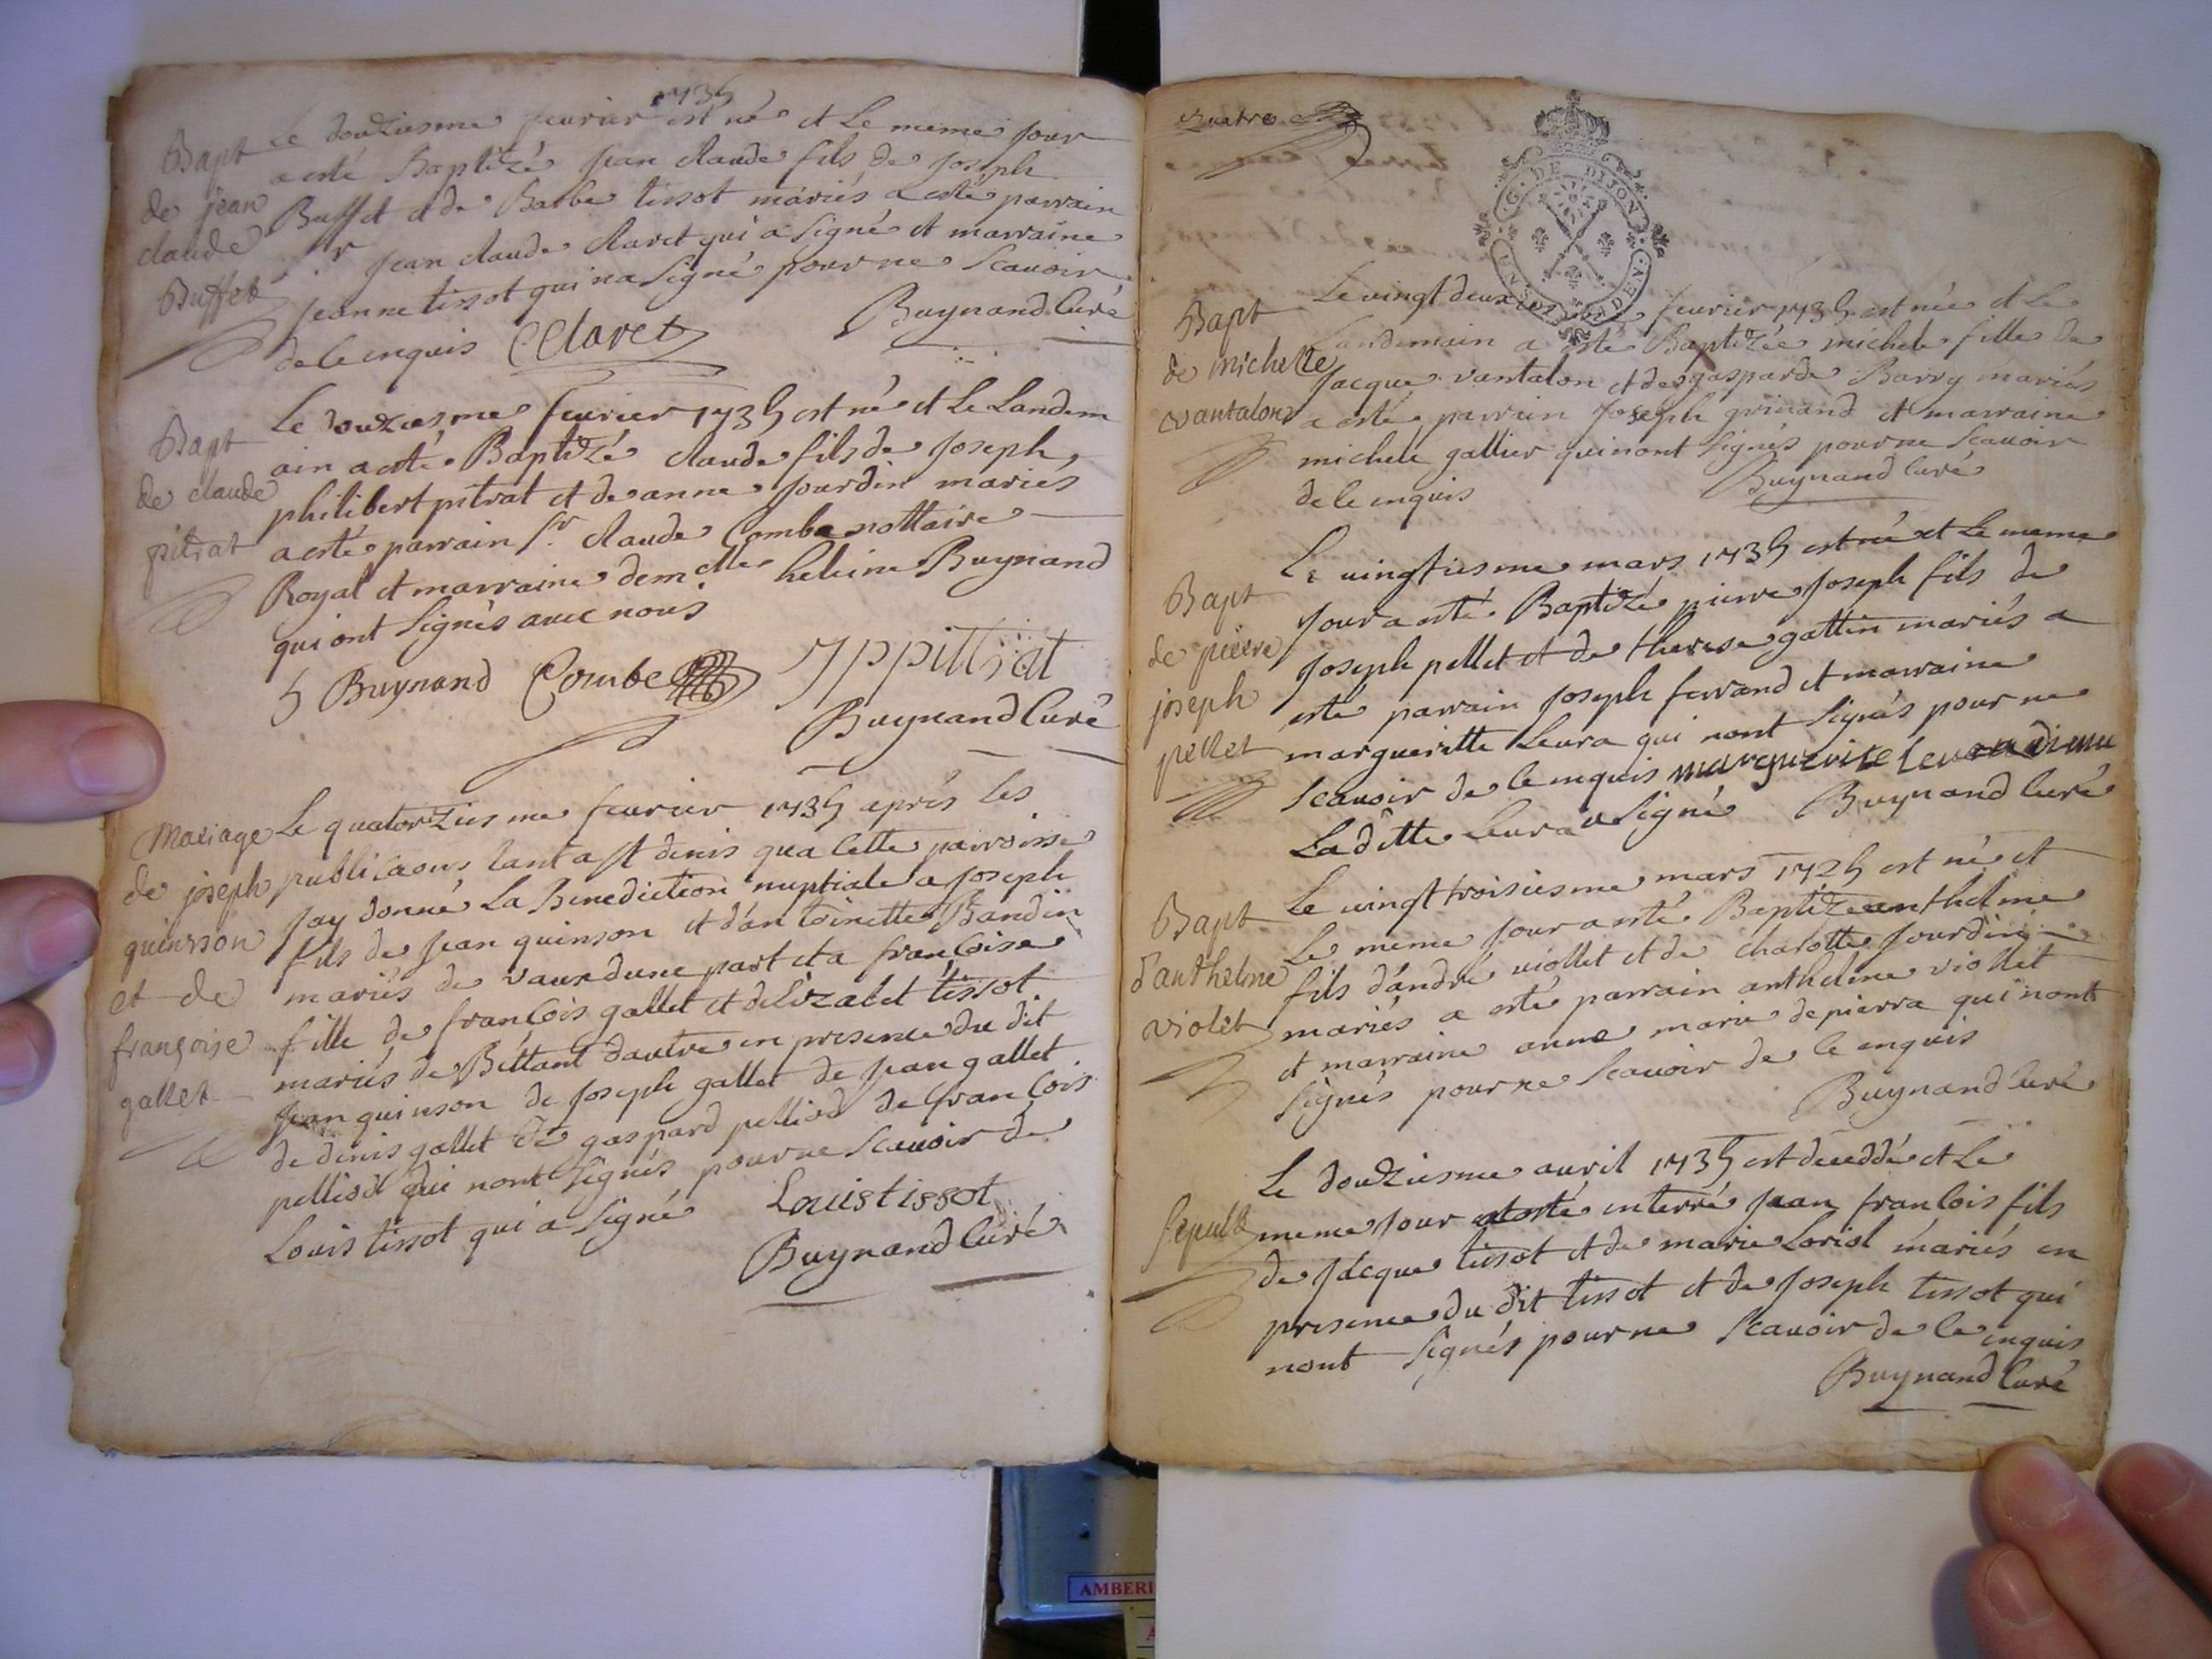 1735
Bapt
de jean
claude
Buffet
Le douziesme feurier est né et Le meme Jour
a esté Baptizé Jean claude fils de Joseph
Buffet et de Barbe tissot mariés a esté parrain
Sr Jean claude claret qui a signé et marraine
Jeanne tissot qui na signé pour ne scauoir
de ce enquis Claret Buynand Curé
Bapt
de claude
pitrat
Le douziesme feurier 1735 est né et Le Landem
ain a esté Baptizé claude fils de Joseph
philibert pitrat et de anne Jourdin mariés
a esté parrain Sr claude Combe nottaire
Royal et marraine demelle heleine Buynand
qui ont signés auec nous
h Buynand Combe Jppittrat
Buynand Curé
Mariage
de joseph
quinsson
et de
françoise
gallet
Le quatorziesme feurier 1735 aprés les
publicaons tant a st denis qua cette parroisse
Jay donné La Benediction nuptiale a Joseph
fils de Jean quinson et dantoinette Bandin
mariés de Vaux dune part et a françoise
fille de françois gallet et delizabet tissot
mariés de Bettant dautre en presence du dit
Jean quinson de Joseph gallet de Jean gallet
de denis gallet de gaspard pelliod de françois
pelliod qui nont signés pour ne scauoir de
Louis tissot qui a signé Louis tissot
Buynand Curé
quatre
G. DE DIJON
Bapt
de michelle
vantalon
Le vingt deuxiesme feurier 1735 est née et Le
Landemain a esté Baptizée michele fille de
Jacque vantalon et de gasparde Barry mariés
a esté parrain Joseph grinand et marraine
michele gallier qui nont signés pour ne scauoir
de ce enquis Buynand Curé
Bapt
de pierre
joseph
pellet
Le vingtiesme mars 1735 est né et Le meme
Jour a esté Baptizé pierre Joseph fils de
Joseph pellet et de therese gattin mariés a
esté parrain Joseph ferrand et marraine
margueritte Leura qui nont signés pour ne
scauoir de ce enquis marguerite
Laditte Leura a signé Buynand Curé
Bapt
d'anthelme
violet
Le vingt troisiesme mars 1725 est né et
Le meme Jour a esté Baptizé anthelme
fils d'andré viollet et de charotte Jourdin
mariés a esté parrain anthelme viollet
et marraine anne marie depierra qui nont
signés pour ne scauoir de ce enquis
Buynand Curé
sepult
Le douziesme auril 1735 est deceddé et Le
meme Jour a esté enterré Jean françois fils
de Jacque tissot et de marie Loriol mariés en
presence du dit tissot et de Joseph tissot qui
nont signés pour ne scauoir de ce enquis
Buynand Curé
AMBERI